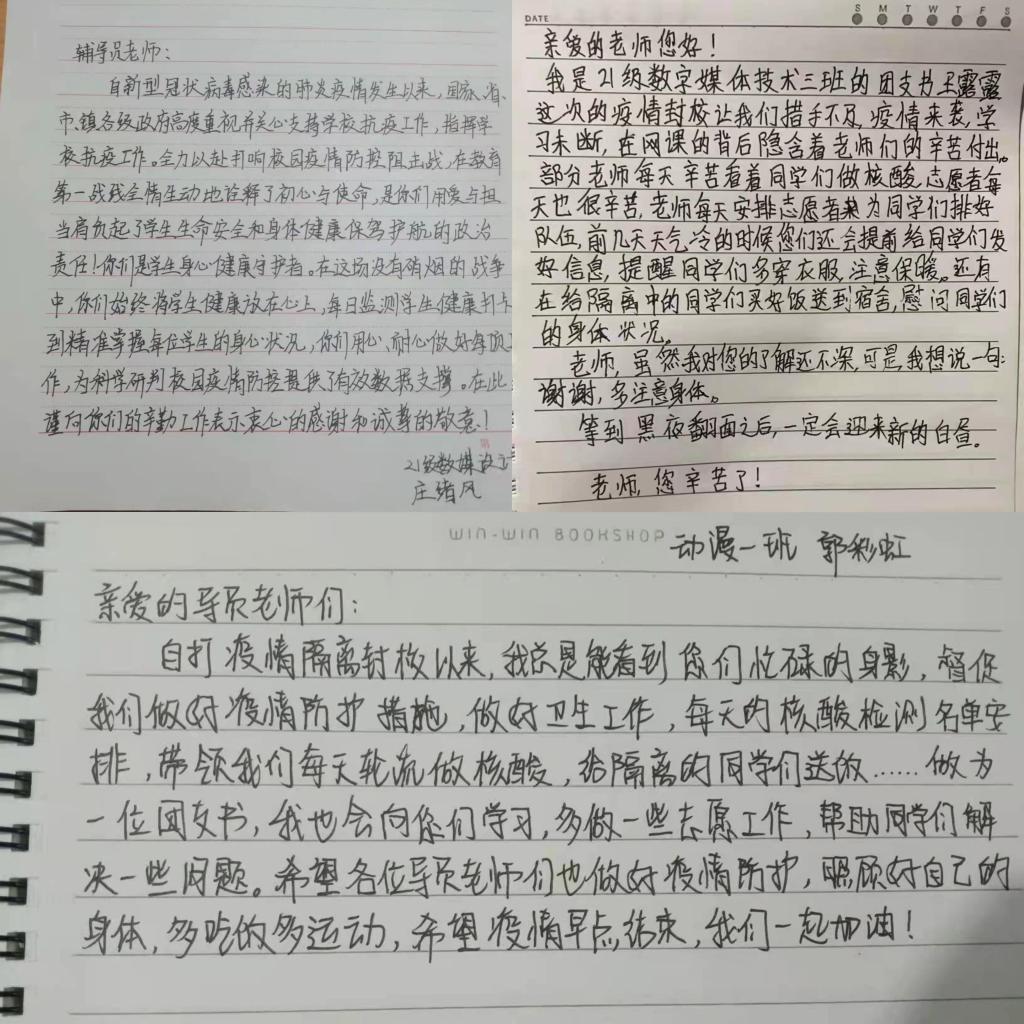 辅导员老师:
自新型冠状病毒感染的肺炎疫情发生以来,国家、省、
市、镇各级政府高度重视并关心支持学校抗疫工作,指挥学
校抗疫工作。全力以赴打响校园疫情防控阻击战,在教育
第一战线全情生动地诠释了初心与使命,是你们用爱与担
当肩负起了学生生命安全和身体健康保驾护航的政治
责任!你们是学生身心健康守护者。在这场没有硝烟的战争
中,你们始终将学生健康放在心上,每日监测学生健康打卡
到精准掌握每位学生的身心状况,你们用心、耐心做好每项工
作,为科学研判校园疫情防控提供了有效数据支撑。在此
谨向你们的辛勤工作表示衷心的感谢和诚尊的敬意!
21级数媒设
庄绪风
DATE
S M T W T F S
亲爱的老师您好!
我是21级数字媒体技术三班的团支书王露露
这次的疫情封校让我们措手不及,疫情来袭,学
习未断,在网课的背后隐含着老师们的辛苦付出。
部分老师每天辛苦看着同学们做核酸,志愿者每
天也很辛苦,老师每天安排志愿者来为同学们排好
队伍,前几天天气冷的时候您们还会提前给同学们发
好信息,提醒同学们多穿衣服,注意保暖。还有
在给隔离中的同学们买好饭送到宿舍,慰问同学们
的身体状况。
老师,虽然我对您的了解还不深,可是,我想说一句:
谢谢,多注意身体。
等到黑夜翻面之后,一定会迎来新的白昼。
老师,您辛苦了!
WIN-WIN BOOKSHOP
动漫一班 郭彩虹
亲爱的导员老师们:
自打疫情隔离封校以来,我总是能看到您们忙碌的身影,督促
我们做好疫情防护措施,做好卫生工作,每天的核酸检测名单安
排,带领我们每天轮流做核酸,给隔离的同学们送饭……做为
一位团支书,我也会向您们学习,多做一些志愿工作,帮助同学们解
决一些问题。希望各位导员老师们也做好疫情防护,照顾好自己的
身体,多吃饭多运动,希望疫情早点结束,我们一起加油!